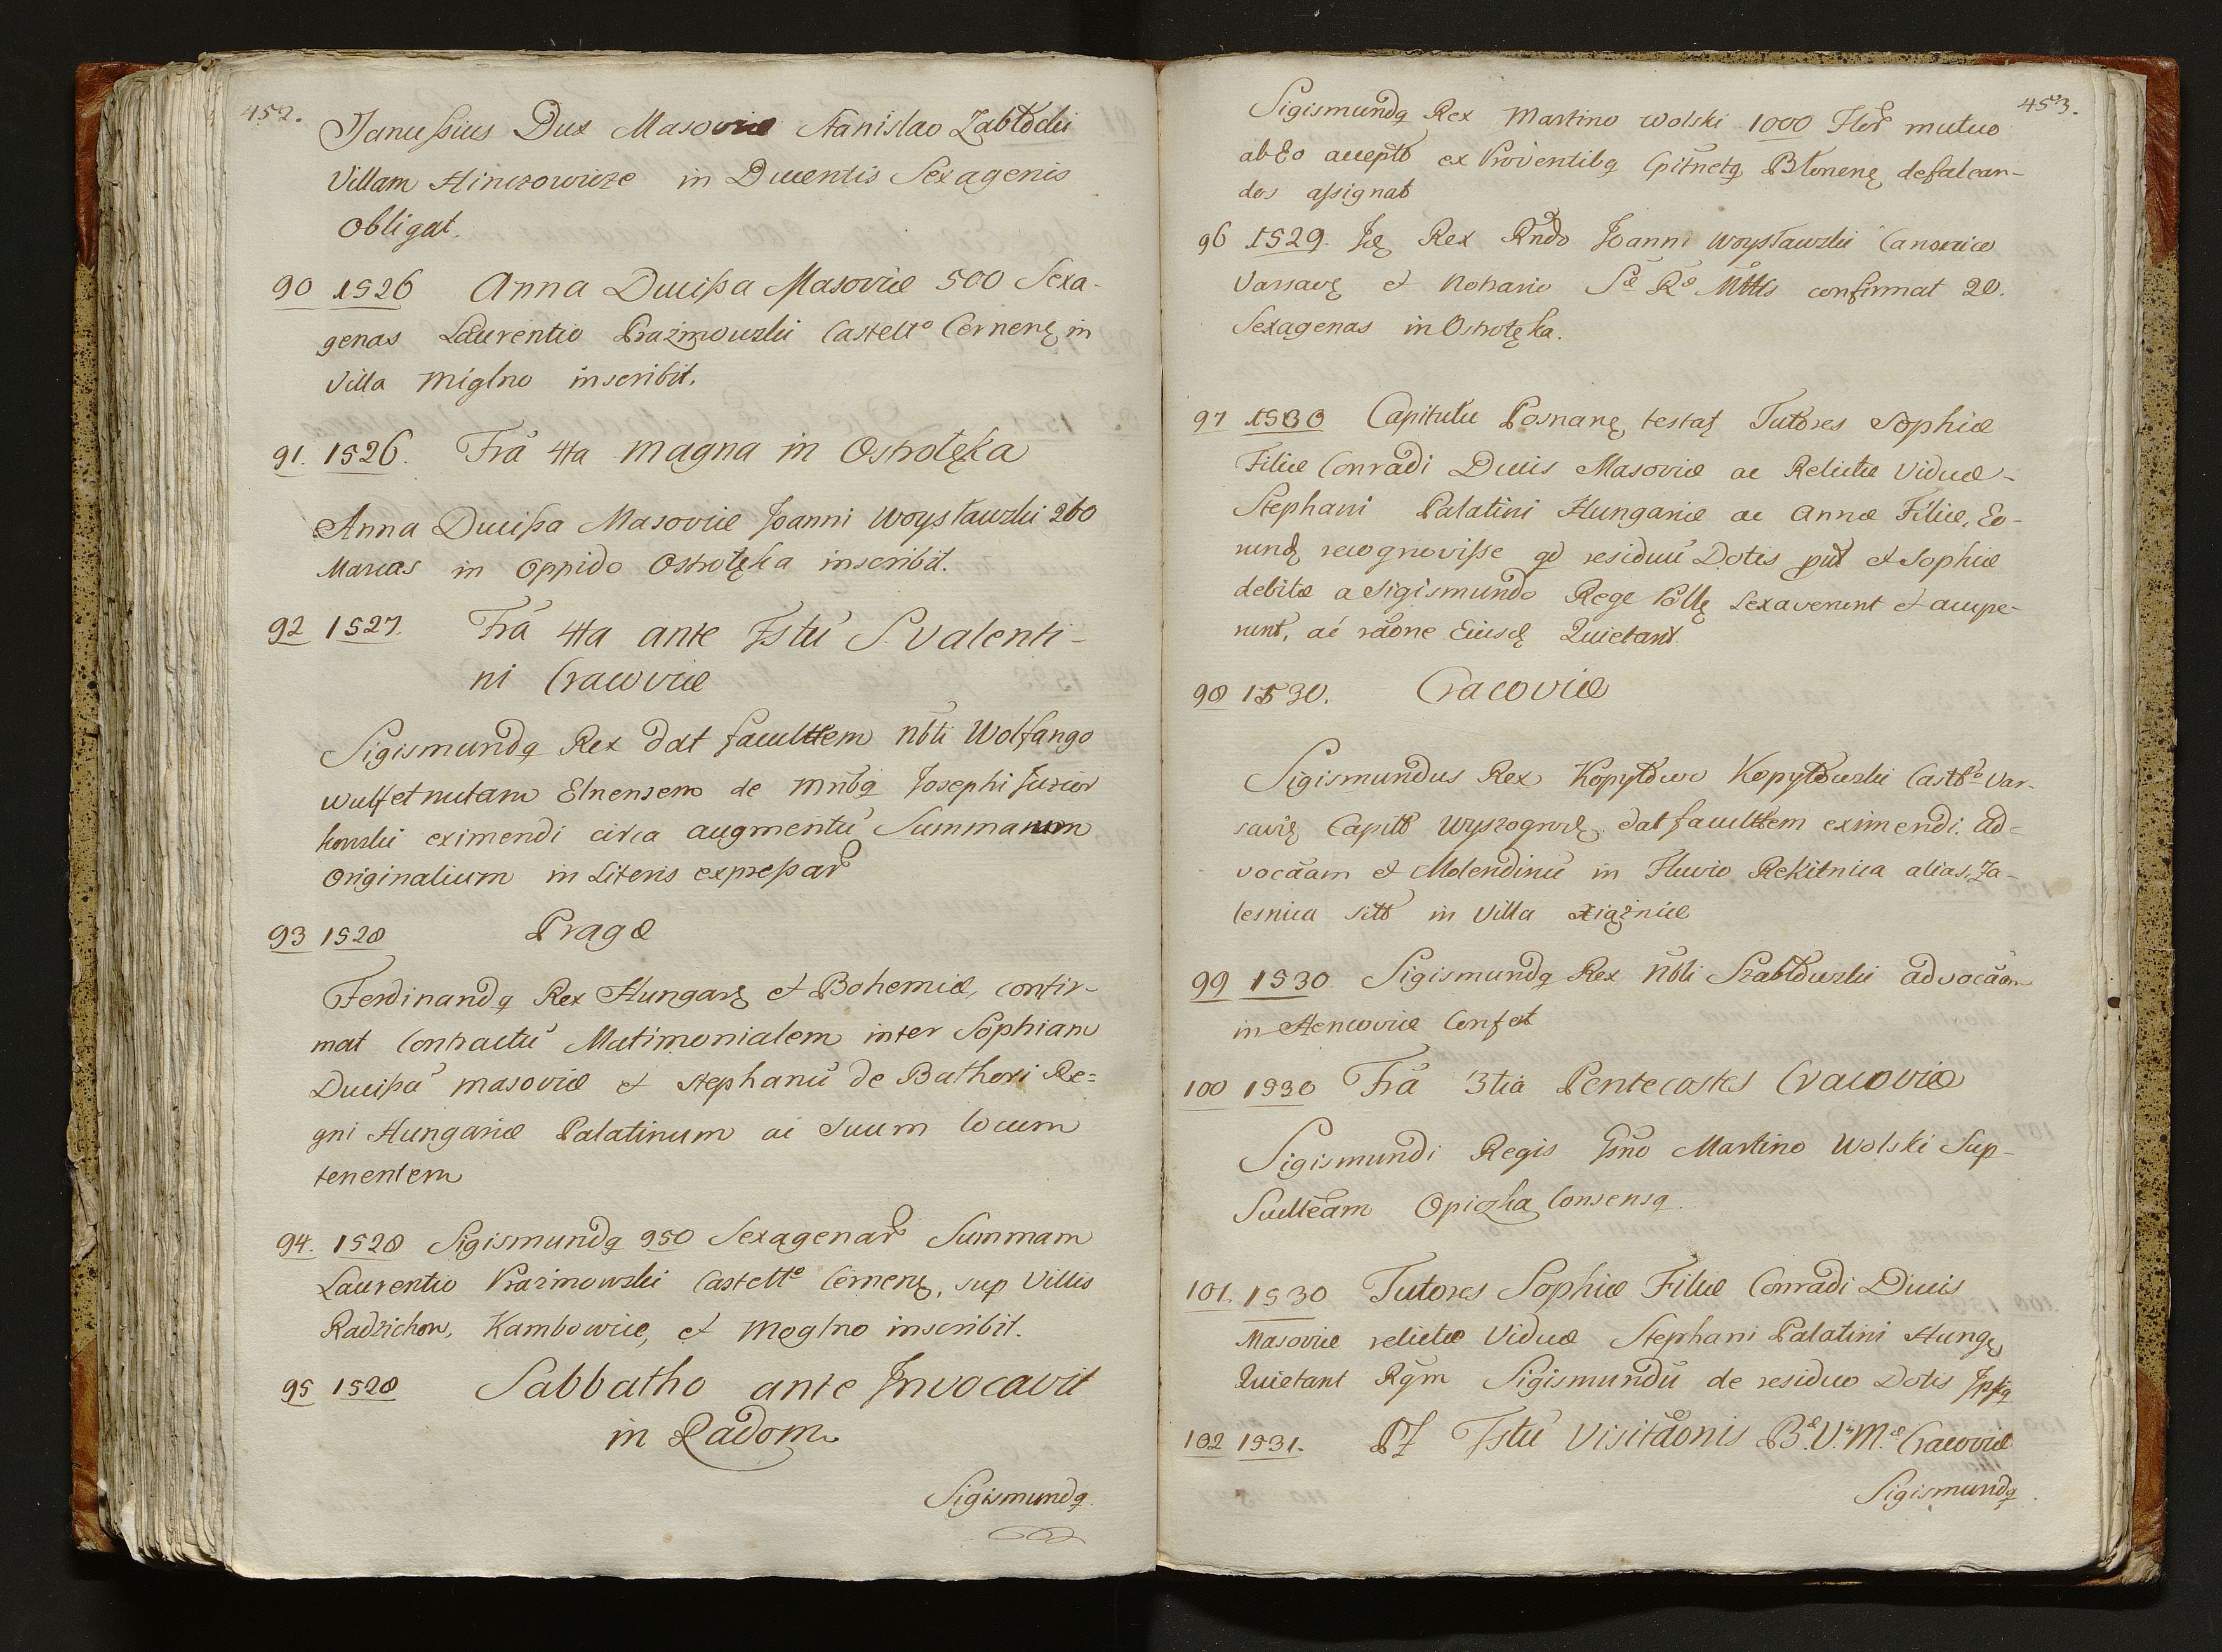 452.
Janussius Dux Masoviæ Stanislao Zabłocki
Villam Hinczowicze in Ducentis Sexagenis
obligat.
90 1526 Anna Ducissa Masoviæ 500 Sexa-
genas Laurentio Prażmowski Castell° Cernenę in
Villa Miglno inscribit.
91. 1526. Frã 4ta magna in Ostrołęka
Anna Ducissa Masoviæ Joanni Woysławski 260
Marcas in oppido Ostrołęka inscribit.
92 1527. Frã 4ta ante Fstũ S. Valenti-
ni Cracoviæ
Sigismundq Rex dat facultтem Nbli Wolfango
Wulfetnutam Elnensem de mnibq Josephi
kowski eximendi circa augmentũ Summarum
Originalium in Literis expressar
93 1528 Pragæ
Ferdinandq Rex Hungarę et Bohemiæ, confir-
mat Contractũ Matimonialem inter Sophiam
Ducissã Masoviæ et Stephanũ de Bathori Re=
gni Hungariæ Palatinum ac suum locum
tenentem
94. 1528 Sigismundq 950 Sexagenar Summam
Laurentio Prażmowski Castell° Cernenę, sup Villis
Radzichow, Kambowice, et Moglno inscribit.
95 1528 Sabbatho ante Invocavit
in Radom.
Sigismundq.
453.
Sigismundq Rex Martino Wolski 1000 Flor mutuo
ab Eo accepto ex Proventibq Cpitnetq Błonenę defalcan-
dos assignat
96 1529. Idę Rex Rndo Joanni Woysławski Canonico
Varsavę et Notario Sæ Ræ Mttis confirmat 20.
Sexagenas in Ostrołęka.
97 1530 Capitulũ Posnanę testat Tutores Sophiæ
Filiæ Conradi Ducis Masoviæ ac Relictæ Viduæ
Stephani Palatini Hungariæ ac Annæ Filiæ, Eo-
rundę recognovisse qd residuũ Dotis put et Sophiæ
debitæ a Sigismundo Rege Pollę Lexaverunt et accepe-
runt, ac rãone Eiusdę Quietant.
98 1530. Cracoviæ
Sigismundus Rex Kopytowo Kopytowski Castll° Var-
savię Capitt Wyszogrodę dat facultтem eximendi. Ad=
vocãam et Molendinũ in Fluvio Rekitnica alias, Ja-
lesnica sitt in Villa Xiążnice
99 1530. Sigismundq Rex Nbli Szabłowski advocãam
in Hencovice Confert
100 1530 Frã 3tia Pentecostes Cracoviæ
Sigismundi Regis Gsno Martino Wolski Sup-
Scultẽam Opiozka Consensq.
101. 1530 Tutores Sophiæ Filiæ Conradi Ducis
Masoviæ relictæ Viduæ Stephani Palatini Hungę
Quietant Rgm Sigismundũ de residuo Dotis Ipsiq
102 1531. Pt Fstũ Visitãonis B.æ V.is M.æ Cracoviæ
Sigismundq